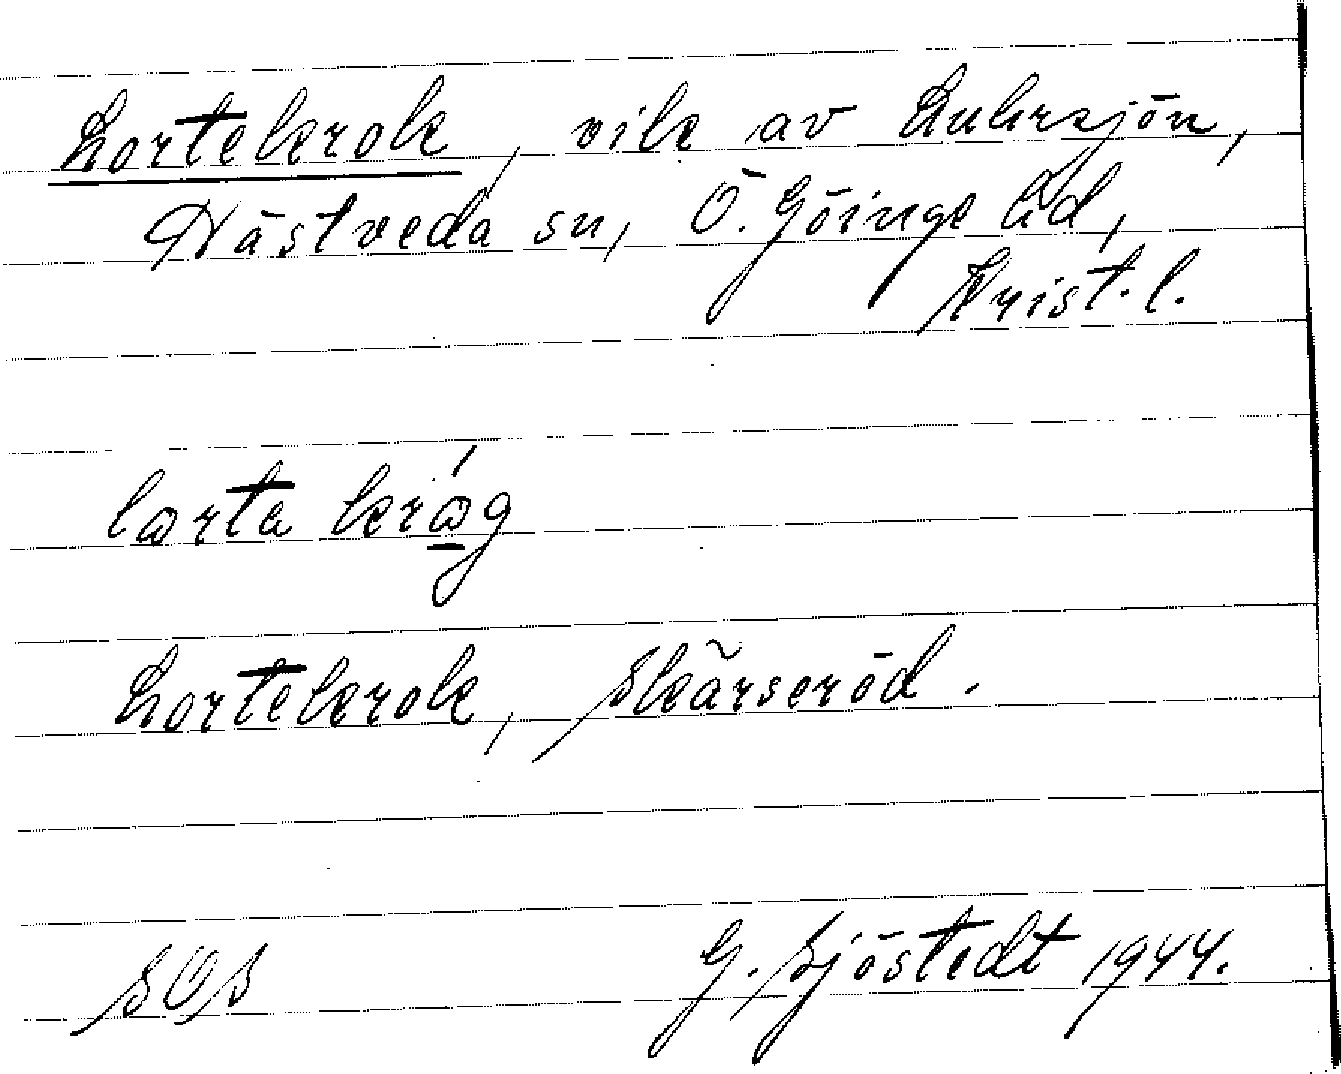 Lortekrok, vik av Luhrsjön,
Nästveda sn, Ö. Göinge hd,
Krist. l.
lorta króg
Lortekrok, Skärseröd.
SOS G. Sjöstedt 1944.